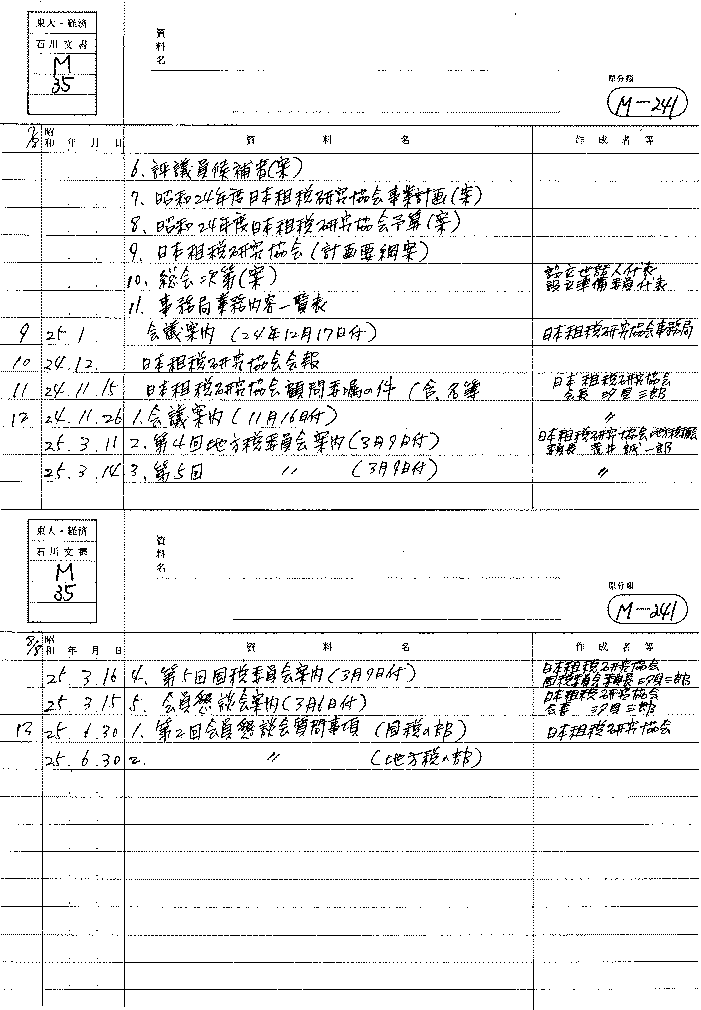 東大・経済
石川文書
M
35
資料名
原分類
M-241
7/8 昭和 年 月 日 資 料 名 作 成 者 等
6. 評議員候補者(案)
7. 昭和24年度日本租税研究協会事業計画(案)
8. 昭和24年度日本租税研究協会予算(案)
9. 日本租税研究協会(計画要綱案)
10. 総会次第(案) 設立世話人代表 設立準備委員代表
11. 事務局事務内容一覧表
9 25. 1 会議案内(24年12月17日付) 日本租税研究協会事務局
10 24. 12. 日本租税研究協会会報
11 24. 11. 15 日本租税研究協会顧問委嘱の件(含、名簿 日本租税研究協会 会長 汐見三郎
12 24. 11. 26 1. 会議案内(11月16日付) 〃
25. 3. 11 2. 第4回地方税委員会案内(3月9日付) 日本租税研究協会地方税委員会 委員長 荒井誠一郎
25. 3. 14 3. 第5回 〃 (3月9日付) 〃
東大・経済
石川文書
M
35
資料名
原分類
M-241
8/8 昭和 年 月 日 資 料 名 作 成 者 等
25. 3. 16 4. 第5回国税委員会案内(3月9日付) 日本租税研究協会 国税委員会委員長 汐見三郎
25. 3. 15 5. 会員懇談会案内(3月6日付) 日本租税研究協会 会長 汐見三郎
13 25. 6. 30 1. 第2回会員懇談会質問事項(国税の部) 日本租税研究協会
25. 6. 30 2. 〃 (地方税の部)